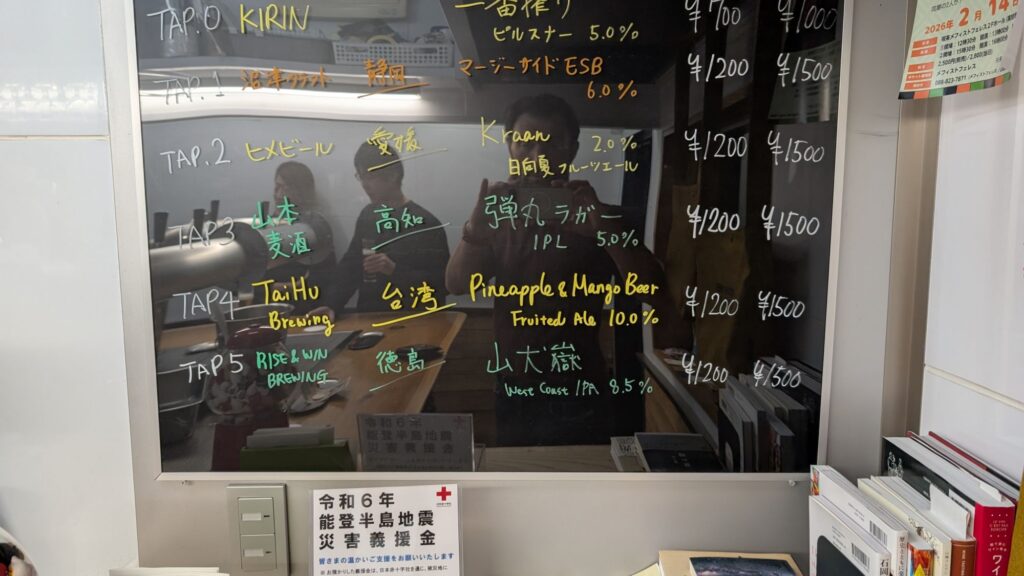 TAP.0 KIRIN 一番搾り ¥700 ¥1000
ピルスナー 5.0%
TAP.1 沼津クラフト 静岡 マージーサイドESB ¥1200 ¥1500
6.0%
TAP.2 ヒメビール 愛媛 Kraan 2.0% ¥1200 ¥1500
日向夏フルーツエール
TAP3 山本 高知 弾丸ラガー ¥1200 ¥1500
麦酒 IPL 5.0%
TAP4 TaiHu 台湾 Pineapple & Mango Beer ¥1200 ¥1500
Brewing Fruited Ale 10.0%
TAP5 RISE & WIN 徳島 山犬嶽 ¥1200 ¥1500
BREWING West Coast IPA 8.5%
2026年2月14
令和6年
能登半島地震
災害義援金
令和6年
能登半島地震
災害義援金
皆さまの温かいご支援をお願いいたします
※お預かりした義援金は、日本赤十字社を通じ、被災地に